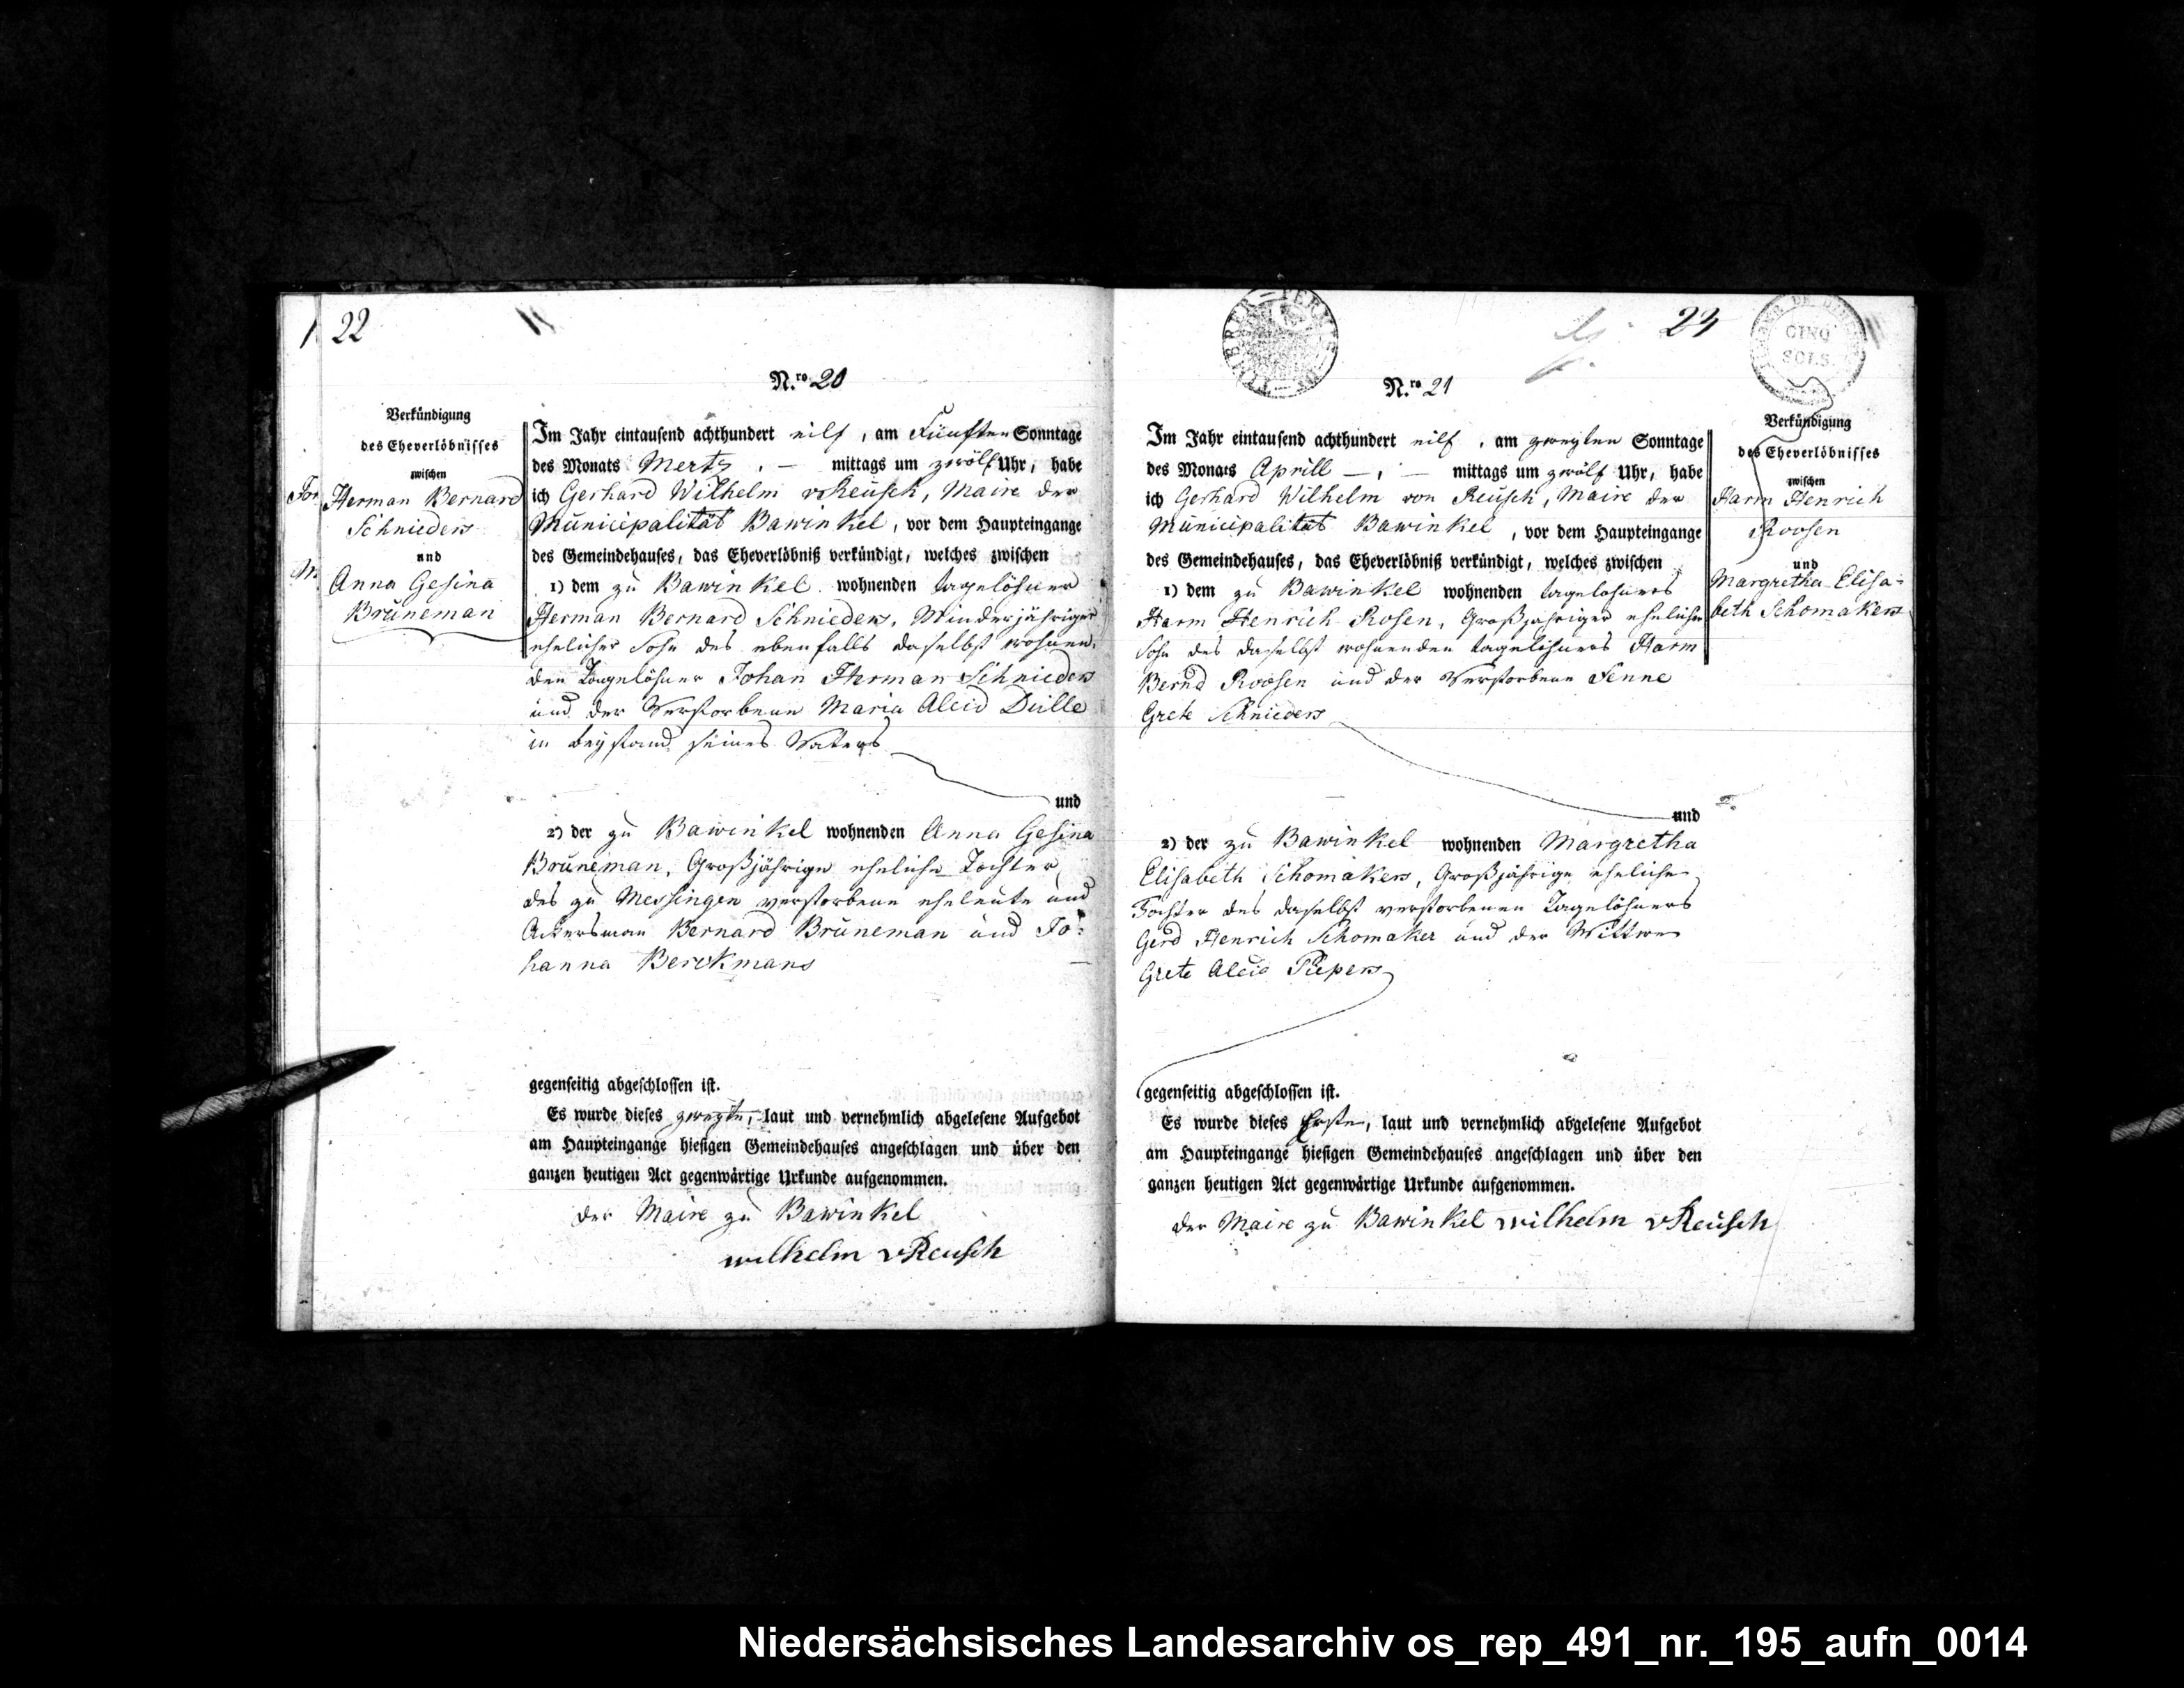 22
N.ro 20
Verkündigung
des Eheverlöbnisses
zwischen
Herman Bernard
Schnieders
und
Anna Gesina
Brüneman
Im Jahr eintausend achthundert eilf, am Fünften Sonntage
des Monats Mertz . — mittags um zwölf Uhr, habe
ich Gerhard Wilhelm v Reusch, Maire der
Municipalität Bawinkel, vor dem Haupteingange
des Gemeindehauses, das Eheverlöbniß verkündigt, welches zwischen
1) dem zu Bawinkel wohnenden tagelöhner
Herman Bernard Schnieders, Minderjähriger
ehelicher Sohn des ebenfalls daselbst wohnen-
den Tagelöhner Johan Herman Schnieders
und der Verstorbene Maria Aleid Dülle
in beystand seines Vaters
und
2) der zu Bawinkel wohnenden Anna Gesina
Brüneman, Großjährige eheliche Tochter
des zu Messingen verstorbene eheleute und
Ackersman Bernard Brüneman und Jo-
hanna Berckmans
gegenseitig abgeschlossen ist.
Es wurde dieses zweyte, laut und vernehmlich abgelesene Aufgebot
am Haupteingange hiesigen Gemeindehauses angeschlagen und über den
ganzen heutigen Act gegenwärtige Urkunde aufgenommen.
der Maire zu Bawinkel
wilhelm vReusch
23
CINQ
SOLS.
N.ro 21
Im Jahr eintausend achthundert eilf, am zweyten Sonntage
des Monats Aprill — . — mittags um zwölf Uhr, habe
ich Gerhard Wilhelm von Reusch, Maire der
Municipalität Bawinkel, vor dem Haupteingange
des Gemeindehauses, das Eheverlöbniß verkündigt, welches zwischen
1) dem zu Bawinkel wohnenden tagelöhners
Harm Henrich Rosen, Großjähriger ehelicher
Sohn des daselbst wohnenden tagelöhners Harm
Bernd Roosen und der Verstorbene Fenne
Grete Schnieders
und
2) der zu Bawinkel wohnenden Margretha
Elisabeth Schomakers, Großjährige eheliche
Tochter des daselbst verstorbenen Tagelöhners
Gerd Henrich Schomaker und der Wittwe
Grete Aleid Piepers
gegenseitig abgeschlossen ist.
Es wurde dieses Erste, laut und vernehmlich abgelesene Aufgebot
am Haupteingange hiesigen Gemeindehauses angeschlagen und über den
ganzen heutigen Act gegenwärtige Urkunde aufgenommen.
der Maire zu Bawinkel wilhelm vReusch
Verkündigung
des Eheverlöbnisses
zwischen
Harm Henrich
Roosen
und
Margretha Elisa-
beth Schomakers
Niedersächsisches Landesarchiv os_rep_491_nr._195_aufn_0014